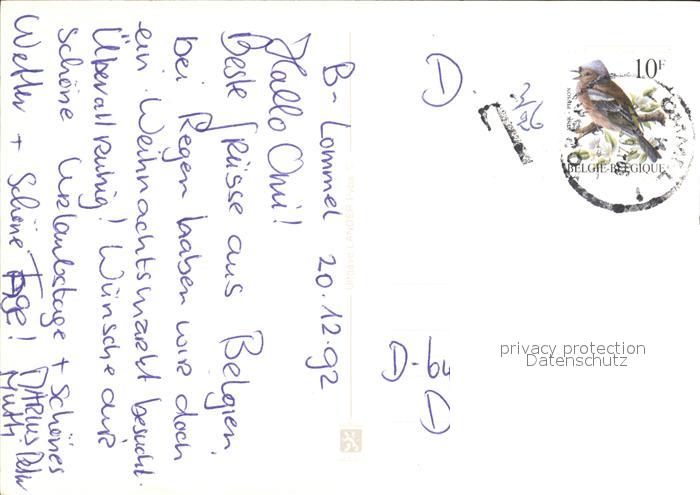 B-Lommel 20.12.92
Hallo Omi!
Beste Grüsse aus Belgien.
bei Regen haben wir doch
ein Weihnachtsmarkt besucht.
Überall ruhig! Wünsche dir
schöne Urlaubstage + schönes
Wetter + Schöne Tage!
Mutti
D.
D.
D
10F
BELGIE-BELGIQUE
privacy protection
Datenschutz